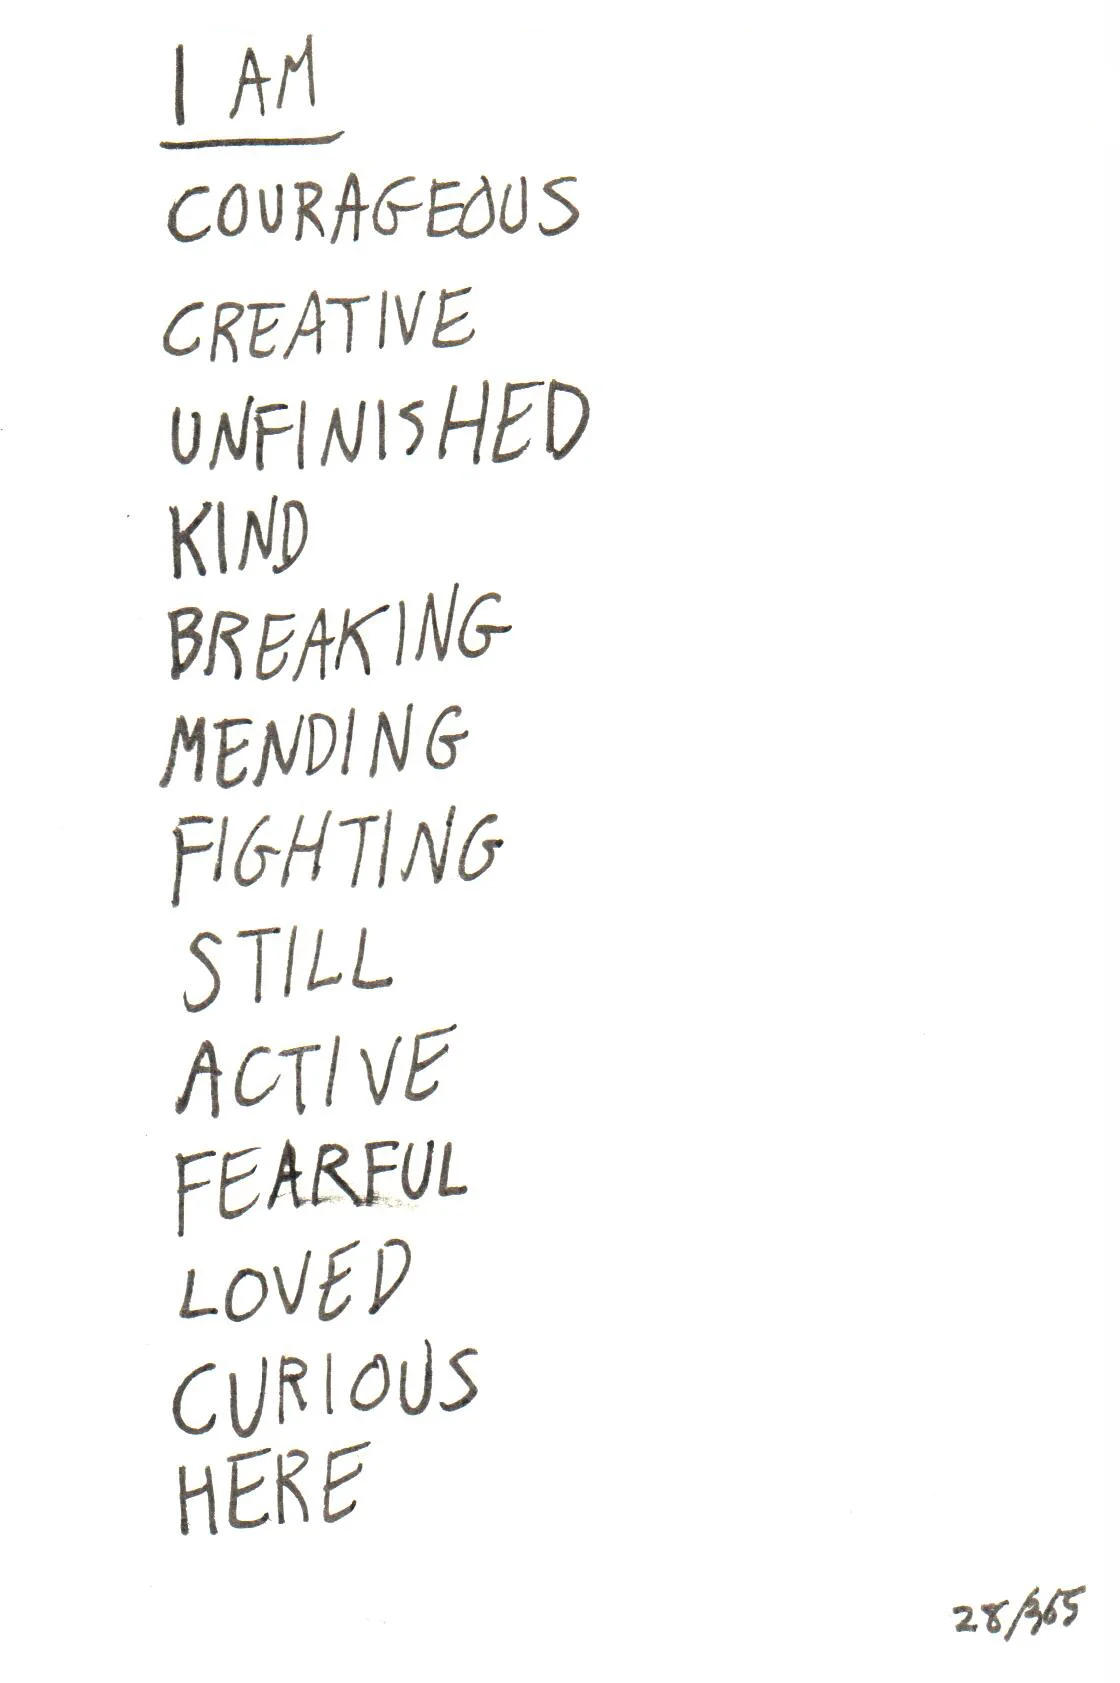 I AM
COURAGEOUS
CREATIVE
UNFINISHED
KIND
BREAKING
MENDING
FIGHTING
STILL
ACTIVE
FEARFUL
LOVED
CURIOUS
HERE
28/365